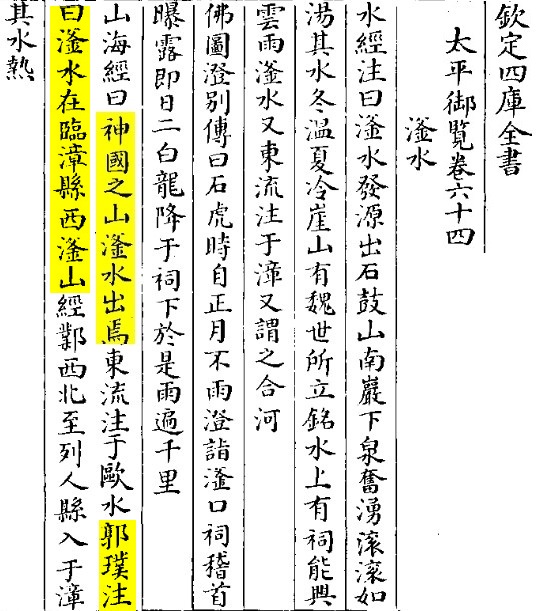 欽定四庫全書
太平御覽卷六十四
滏水
水經注曰滏水發源出石鼓山南巖下泉奮湧滚滚如
湯其水冬温夏冷崖山有魏世所立銘水上有祠能興
雲雨滏水又東流注于漳又謂之合河
佛圖澄别傳曰石虎時自正月不雨澄詣滏口祠稽首
曝露即日二白龍降于祠下於是雨遍千里
山海經曰神國之山滏水出焉東流注于歐水郭璞注
曰滏水在臨漳縣西滏山經鄴西北至列人縣入于漳
其水熱